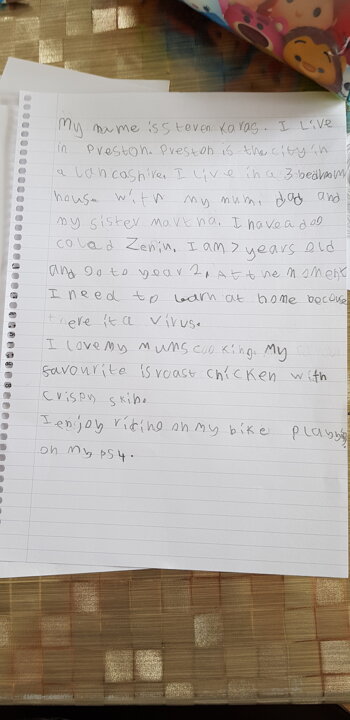 My name is Steven Karas. I Live
in Preston. Preston is the city in
a Lancashire. I Live in a 3 bedroom
house with my mum, dad and
my sister martha. I have a dog
calad Zenin. I am 7 years old
and go to year 2. At the moment
I need to learn at home because
there it a virus.
I love my mums cooking. My
favourite is roast chicken with
crispy skin.
I enjoy riding on my bike playing
on my ps4.